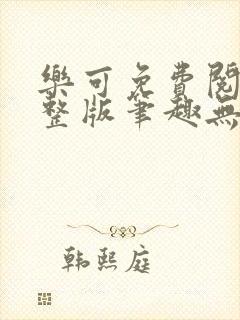 樂可免費閱
整版筆趣無
韩熙庭